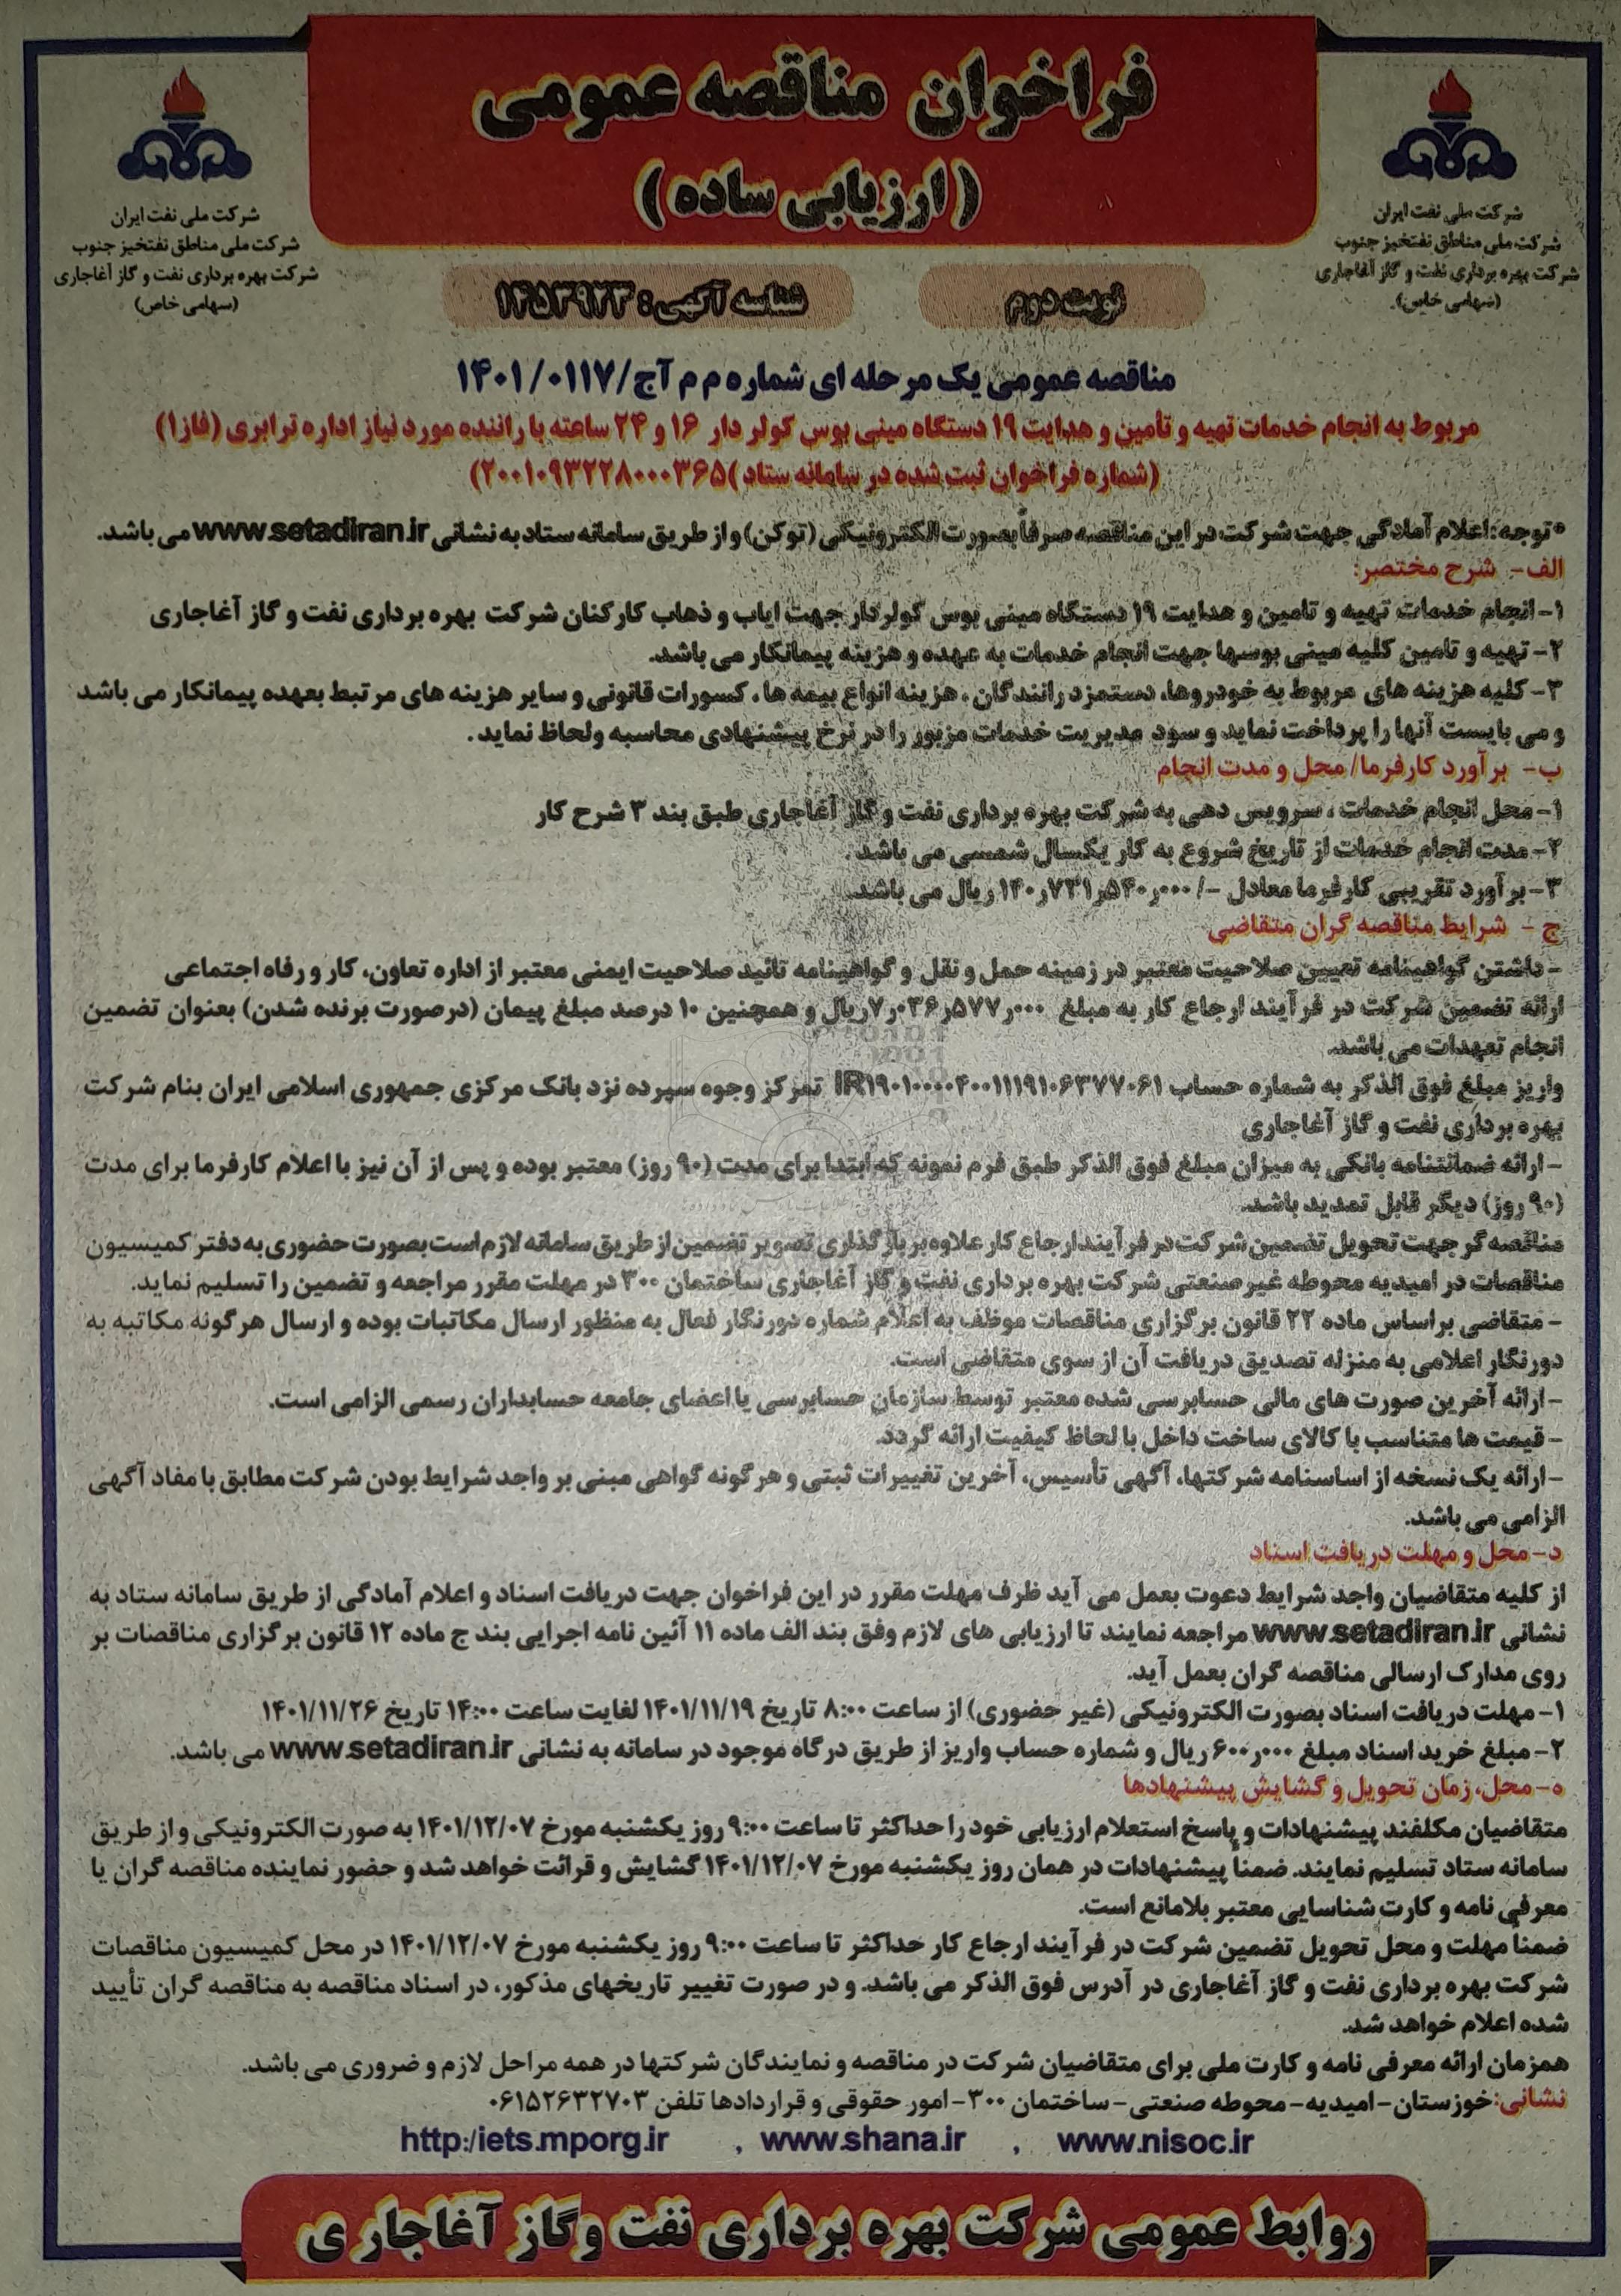 فراخوان مناقصه عمومی
(ارزیابی ساده)
شرکت ملی نفت ایران
شرکت ملی مناطق نفتخیز جنوب
شرکت بهره برداری نفت و گاز آغاجاری
(سهامی خاص)
شرکت ملی نفت ایران
شرکت ملی مناطق نفتخیز جنوب
شرکت بهره برداری نفت و گاز آغاجاری
(سهامی خاص)
نوبت دوم
شناسه آگهی: ۱۴۵۳۹۲۳
مناقصه عمومی یک مرحله ای شماره م م آج/۱۴۰۱/۰۱۱۷
مربوط به انجام خدمات تهیه و تأمین و هدایت ۱۹ دستگاه مینی بوس کولر دار ۱۶ و ۲۴ ساعته با راننده مورد نیاز اداره ترابری (فاز۱)
(شماره فراخوان ثبت شده در سامانه ستاد)۲۰۰۱۰۹۳۲۲۸۰۰۰۳۶۵)
*توجه:اعلام آمادگی جهت شرکت در این مناقصه صرفاً بصورت الکترونیکی (توکن) و از طریق سامانه ستاد به نشانی www.setadiran.ir می باشد.
الف- شرح مختصر:
۱- انجام خدمات تهیه و تامین و هدایت ۱۹ دستگاه مینی بوس کولردار جهت ایاب و ذهاب کارکنان شرکت بهره برداری نفت و گاز آغاجاری
۲- تهیه و تامین کلیه مینی بوسها جهت انجام خدمات به عهده و هزینه پیمانکار می باشد.
۳- کلیه هزینه های مربوط به خودروها، دستمزد رانندگان، هزینه انواع بیمه ها، کسورات قانونی و سایر هزینه های مرتبط بعهده پیمانکار می باشد
و می بایست آنها را پرداخت نماید و سود مدیریت خدمات مزبور را در نرخ پیشنهادی محاسبه ولحاظ نماید.
ب- برآورد کارفرما/ محل و مدت انجام
۱- محل انجام خدمات، سرویس دهی به شرکت بهره برداری نفت و گاز آغاجاری طبق بند ۳ شرح کار
۲- مدت انجام خدمات از تاریخ شروع به کار یکسال شمسی می باشد.
۳- برآورد تقریبی کارفرما معادل -/۱۴۰ر۷۳۱ر۵۴۰ر۰۰۰ ریال می باشد.
ج - شرایط مناقصه گران متقاضی
- داشتن گواهینامه تعیین صلاحیت معتبر در زمینه حمل و نقل و گواهینامه تائید صلاحیت ایمنی معتبر از اداره تعاون، کار و رفاه اجتماعی
ارائه تضمین شرکت در فرآیند ارجاع کار به مبلغ ۷ر۰۳۶ر۵۷۷ر۰۰۰ ریال و همچنین ۱۰ درصد مبلغ پیمان (درصورت برنده شدن) بعنوان تضمین
انجام تعهدات می باشد.
واریز مبلغ فوق الذکر به شماره حساب IR۱۹۰۱۰۰۰۰۴۰۰۱۱۱۹۱۰۶۳۷۷۰۶۱ تمرکز وجوه سپرده نزد بانک مرکزی جمهوری اسلامی ایران بنام شرکت
بهره برداری نفت و گاز آغاجاری
- ارائه ضمانتنامه بانکی به میزان مبلغ فوق الذکر طبق فرم نمونه که ابتدا برای مدت (۹۰ روز) معتبر بوده و پس از آن نیز با اعلام کارفرما برای مدت
(۹۰ روز) دیگر قابل تمدید باشد.
مناقصه گر جهت تحویل تضمین شرکت در فرآیند ارجاع کار علاوه بر بارگذاری تصویر تضمین از طریق سامانه لازم است بصورت حضوری به دفتر کمیسیون
مناقصات در امیدیه محوطه غیرصنعتی شرکت بهره برداری نفت و گاز آغاجاری ساختمان ۳۰۰ در مهلت مقرر مراجعه و تضمین را تسلیم نماید.
- متقاضی براساس ماده ۲۲ قانون برگزاری مناقصات موظف به اعلام شماره دورنگار فعال به منظور ارسال مکاتبات بوده و ارسال هرگونه مکاتبه به
دورنگار اعلامی به منزله تصدیق دریافت آن از سوی متقاضی است.
- ارائه آخرین صورت های مالی حسابرسی شده معتبر توسط سازمان حسابرسی یا اعضای جامعه حسابداران رسمی الزامی است.
- قیمت ها متناسب با کالای ساخت داخل با لحاظ کیفیت ارائه گردد.
- ارائه یک نسخه از اساسنامه شرکتها، آگهی تأسیس، آخرین تغییرات ثبتی و هرگونه گواهی مبنی بر واجد شرایط بودن شرکت مطابق با مفاد آگهی
الزامی می باشد.
د- محل و مهلت دریافت اسناد
از کلیه متقاضیان واجد شرایط دعوت بعمل می آید ظرف مهلت مقرر در این فراخوان جهت دریافت اسناد و اعلام آمادگی از طریق سامانه ستاد به
نشانی www.setadiran.ir مراجعه نمایند تا ارزیابی های لازم وفق بند الف ماده ۱۱ آئین نامه اجرایی بند ج ماده ۱۲ قانون برگزاری مناقصات بر
روی مدارک ارسالی مناقصه گران بعمل آید.
۱- مهلت دریافت اسناد بصورت الکترونیکی (غیر حضوری) از ساعت ۸:۰۰ تاریخ ۱۴۰۱/۱۱/۱۹ لغایت ساعت ۱۴:۰۰ تاریخ ۱۴۰۱/۱۱/۲۶
۲- مبلغ خرید اسناد مبلغ ۶۰۰ر۰۰۰ ریال و شماره حساب واریز از طریق درگاه موجود در سامانه به نشانی www.setadiran.ir می باشد.
ه- محل، زمان تحویل و گشایش پیشنهادها
متقاضیان مکلفند پیشنهادات و پاسخ استعلام ارزیابی خود را حداکثر تا ساعت ۹:۰۰ روز یکشنبه مورخ ۱۴۰۱/۱۲/۰۷ به صورت الکترونیکی و از طریق
سامانه ستاد تسلیم نمایند. ضمناً پیشنهادات در همان روز یکشنبه مورخ ۱۴۰۱/۱۲/۰۷ گشایش و قرائت خواهد شد و حضور نماینده مناقصه گران با
معرفی نامه و کارت شناسایی معتبر بلامانع است.
ضمنا مهلت و محل تحویل تضمین شرکت در فرآیند ارجاع کار حداکثر تا ساعت ۹:۰۰ روز یکشنبه مورخ ۱۴۰۱/۱۲/۰۷ در محل کمیسیون مناقصات
شرکت بهره برداری نفت و گاز آغاجاری در آدرس فوق الذکر می باشد. و در صورت تغییر تاریخهای مذکور، در اسناد مناقصه به مناقصه گران تأیید
شده اعلام خواهد شد.
همزمان ارائه معرفی نامه و کارت ملی برای متقاضیان شرکت در مناقصه و نمایندگان شرکتها در همه مراحل لازم و ضروری می باشد.
نشانی:خوزستان- امیدیه- محوطه صنعتی- ساختمان ۳۰۰- امور حقوقی و قراردادها تلفن ۰۶۱۵۲۶۳۲۷۰۳
www.nisoc.ir , www.shana.ir , http:/iets.mporg.ir
روابط عمومی شرکت بهره برداری نفت وگاز آغاجاری